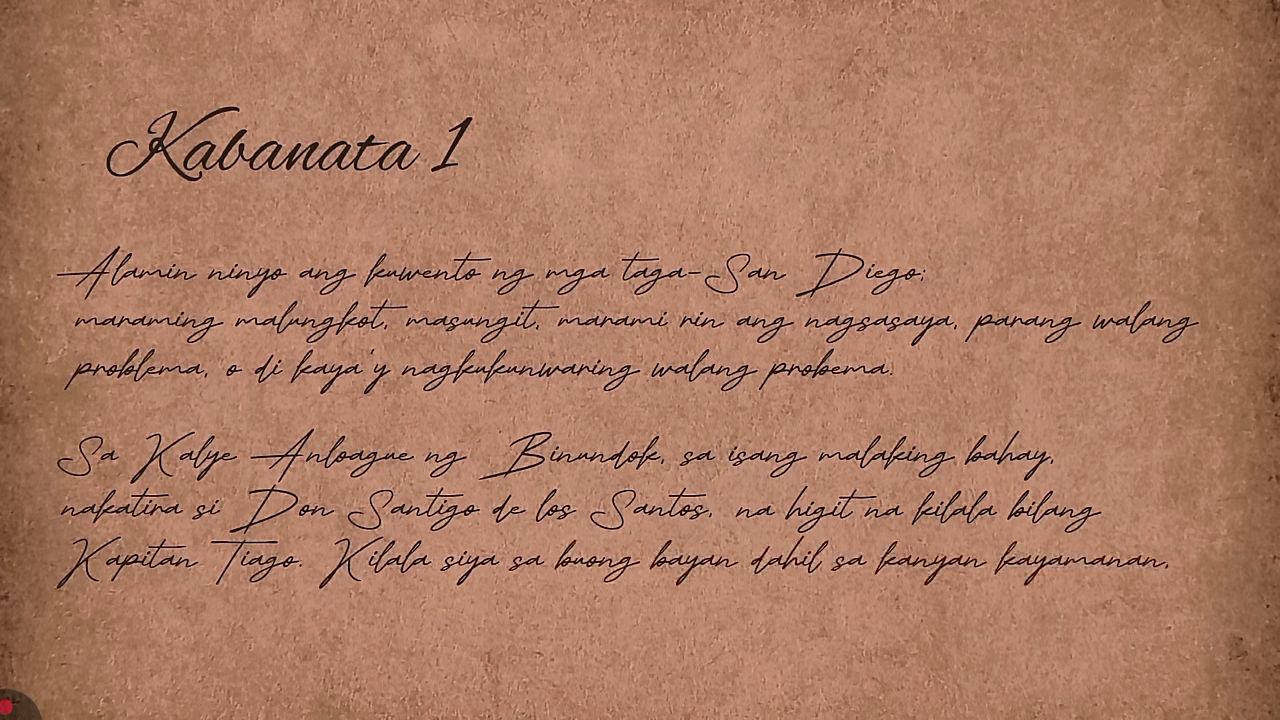 Kabanata 1
Alamin ninyo ang kuwento ng mga taga-San Diego;
maraming malungkot, masungit, marami rin ang nagsasaya, parang walang
problema, o di kaya'y nagkukunwaring walang probema.
Sa Kalye Anloague ng Binundok, sa isang malaking bahay,
nakatira si Don Santigo de los Santos, na higit na kilala bilang
Kapitan Tiago. Kilala siya sa buong bayan dahil sa kanyan kayamanan,